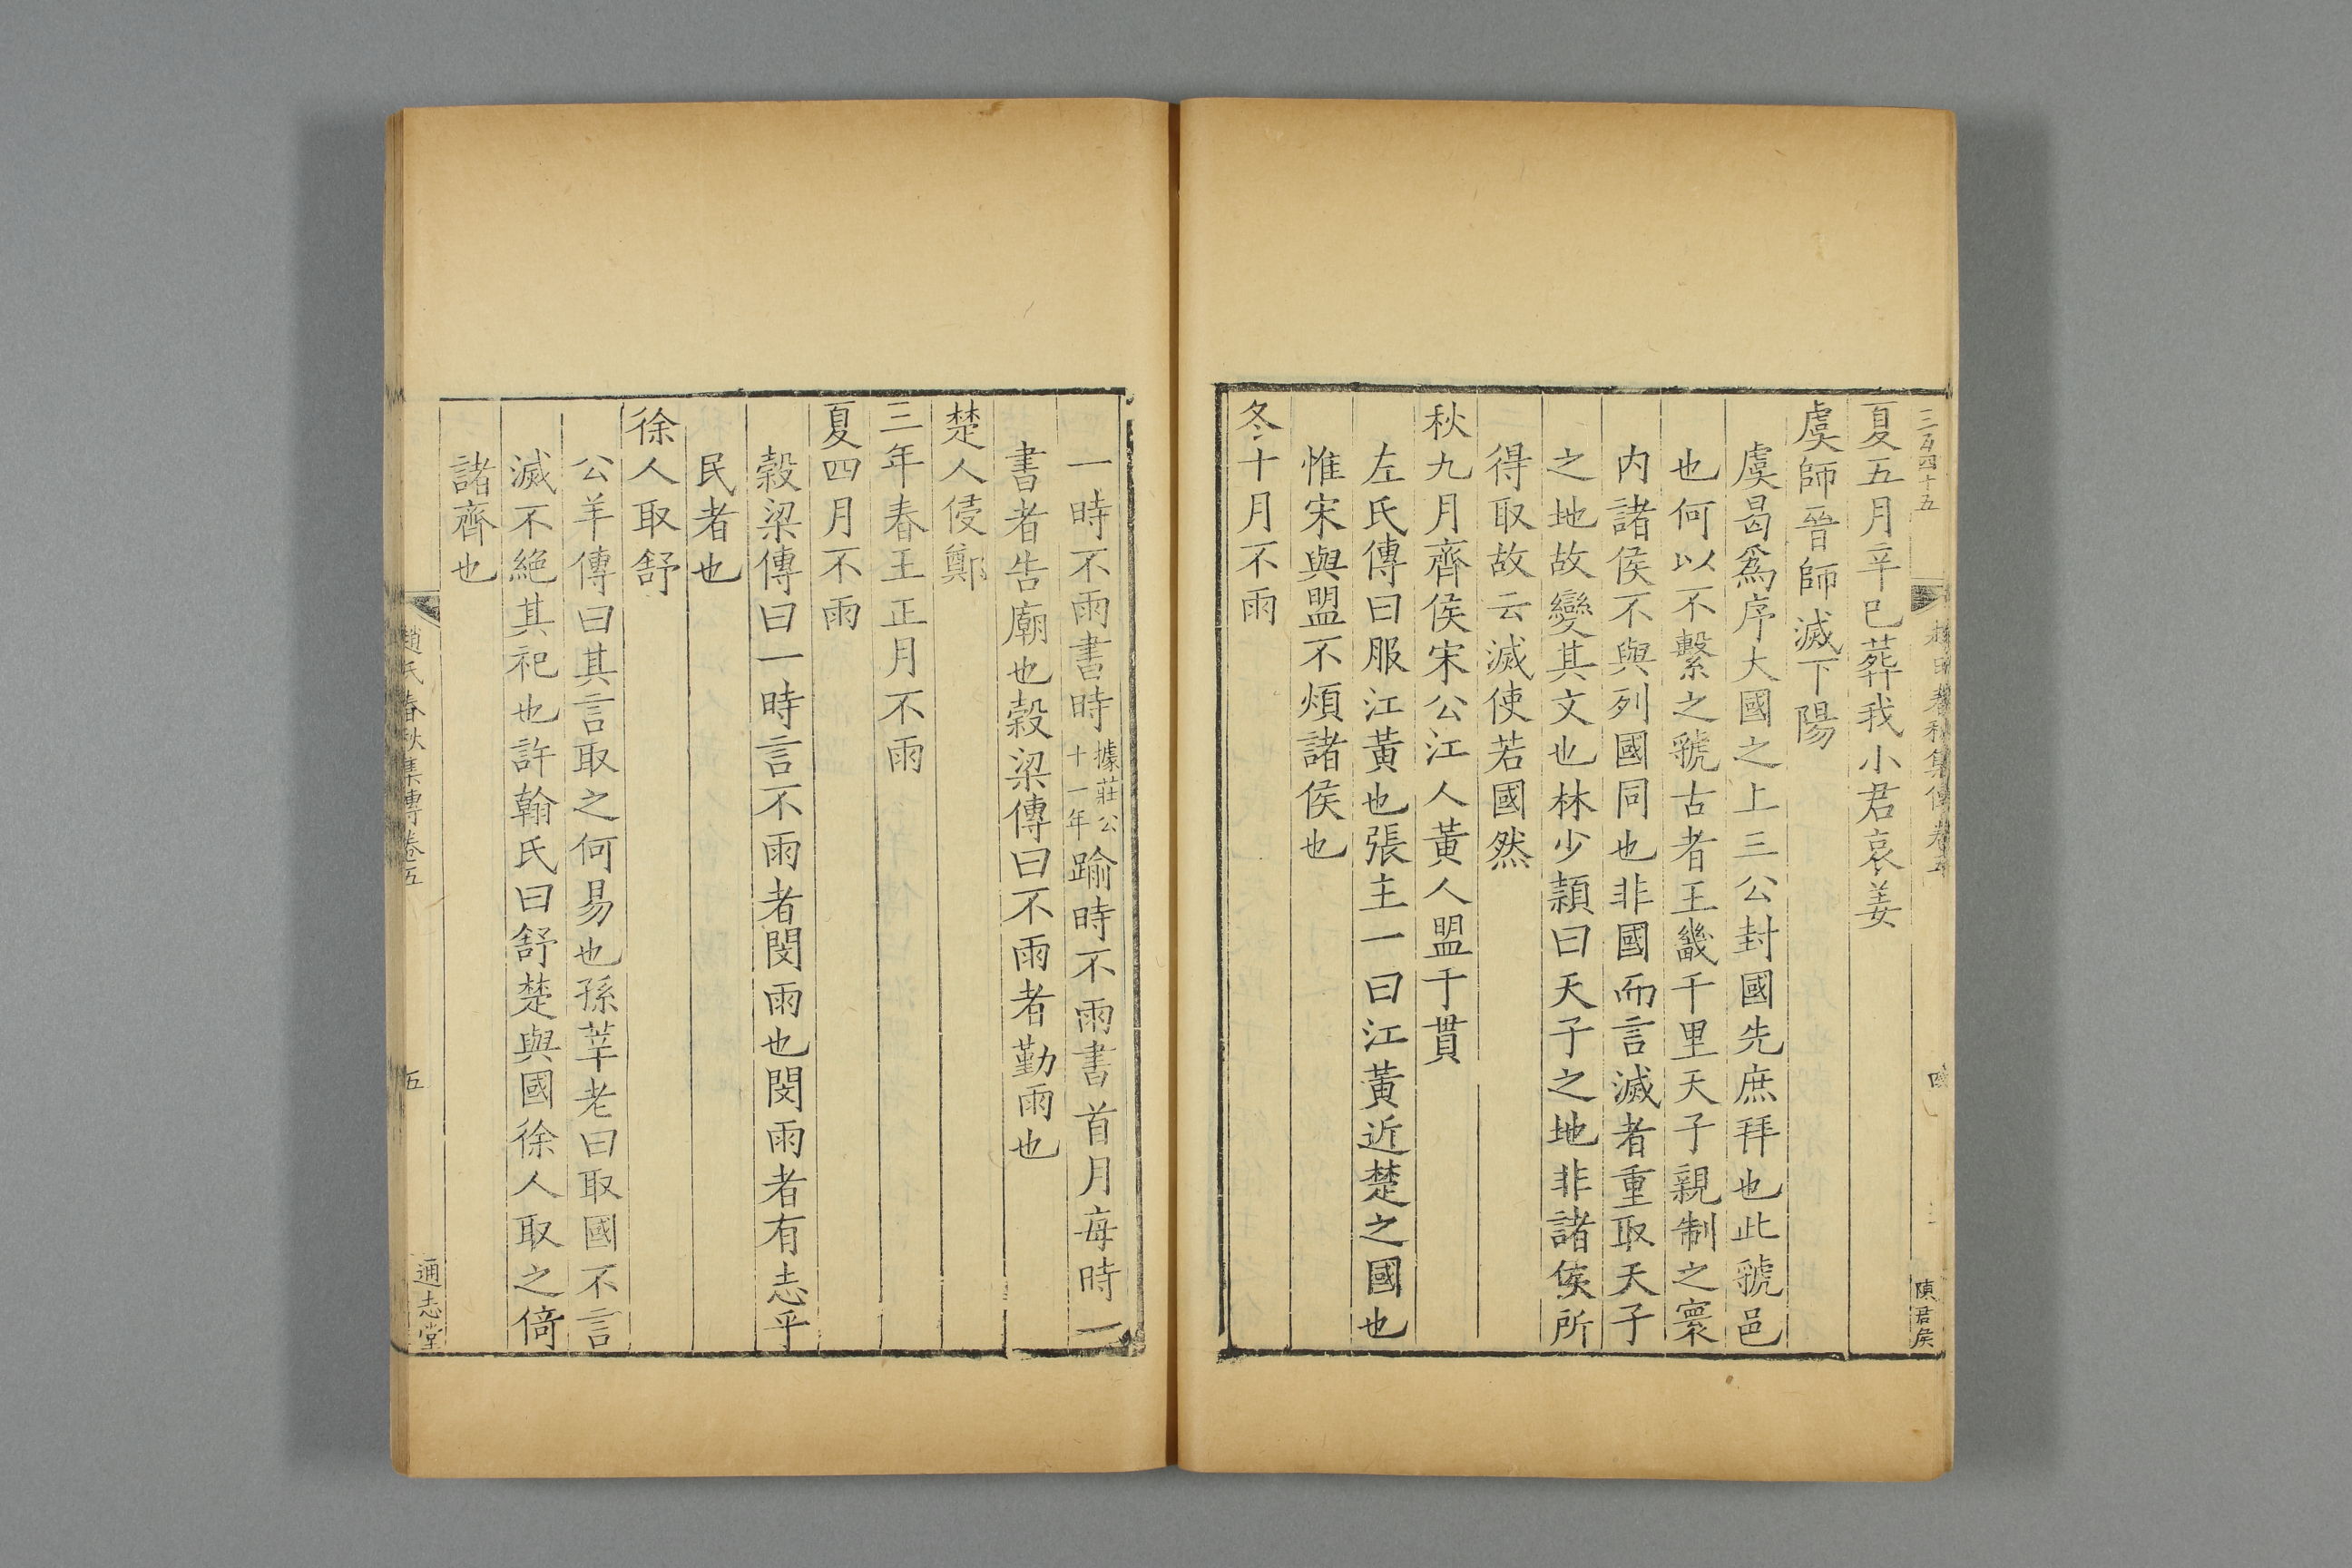 夏五月辛巳葬我小君哀姜
虞師晉師滅下陽
虞曷爲序大國之上三公封國先庶拜也此虢邑
也何以不繫之虢古者王畿千里天子親制之寰
内諸侯不與列國同也非國而言滅者重取天子
之地故變其文也林少頴曰天子之地非諸侯所
得取故云滅使若國然
秋九月齊侯宋公江人黃人盟于貫
左氏傳曰服江黃也張主一曰江黃近楚之國也
惟宋與盟不煩諸侯也
冬十月不雨
一時不雨書時據莊公十一年踰時不雨書首月每時一
書者告廟也穀梁傳曰不雨者勤雨也
楚人侵鄭
三年春王正月不雨
夏四月不雨
穀梁傳曰一時言不雨者閔雨也閔雨者有志乎
民者也
徐人取舒
公羊傳曰其言取之何易也孫莘老曰取國不言
滅不絕其祀也許翰氏曰舒楚與國徐人取之倚
諸齊也
趙氏春秋集傳卷五
五
通志堂